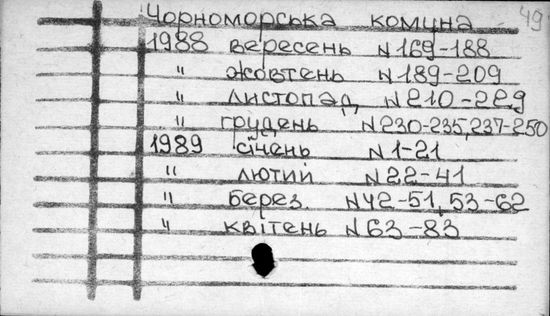 49
Чорноморська комуна
1988 вересень N169-188
" жовтень N189-209
" листопад N210-229
" грудень N230-235,237-250
1989 січень N1-21
" лютий N22-41
" берез. N42-51, 53-62
" квітень N63-83